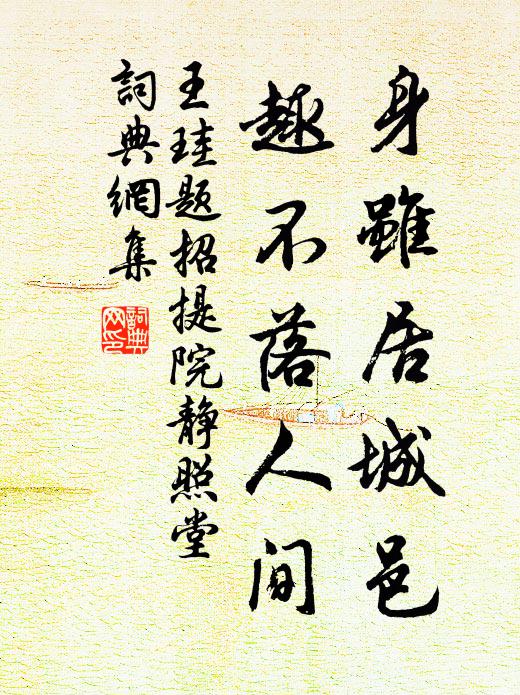 身雖居城邑
趣不落人間
王珪題招提院靜照堂
詞典網集
詞典
网印